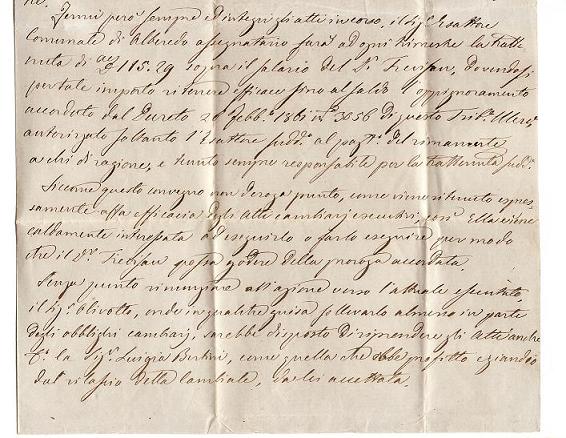 ne.
Fermi però sempre ed integri gli atti in corso, il Sigr Esattore
Comunale di Albaredo assegnatario farà ad ogni rimesse la tratte
nuta di 115.29 sopra il salario del Dr Trevisan, dovendosi
per tale importo ritenere efficace fino al saldo oppignoramento
accordato dal Decreto 20 Febbo 1861 No 3056 di questo Tribe
autorizzato soltanto l'Esattore suddo al pagto del rimanente
a chi di ragione, e tenuto sempre responsabile per la trattenuta suddta
Siccome questo convegno non deroga punto, come viene ritenuto espres
samente alla efficacia degli Atti cambiarj esecutivi, così Ella viene
caldamente interessata ad eseguirlo o farlo eseguire per modo
che il Dr Trevisan possa godere della proroga accordata.
Senza punto rinunziare all'azione verso l'attuale esecutato,
il Sigr Olivotto, onde in qualche guisa sollevarlo almeno in parte
dagli obblighi cambiarj, sarebbe disposto di riprendere gli Atti anche
Co la Siga Luigia Bertini, come quella che ebbe profitto eziandio
dal rilascio della Cambiale, da lei accettata.